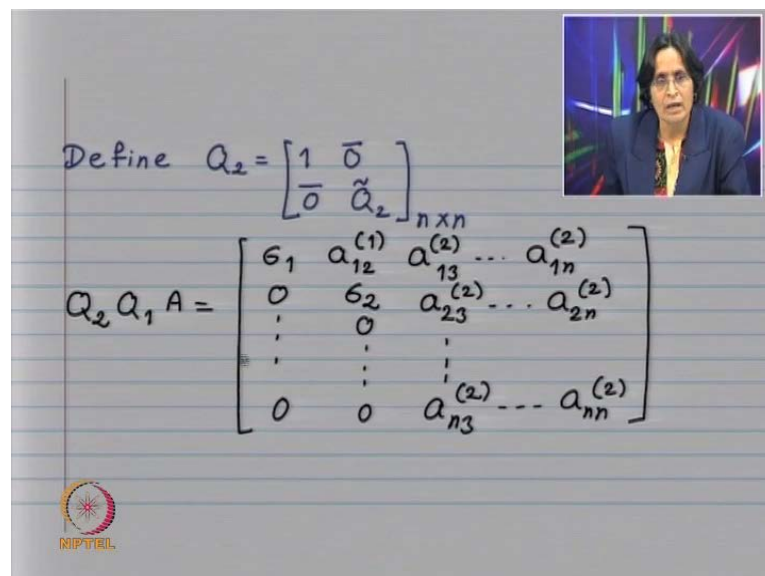 Define Q₂ = [1 0̅
0̅ Q̃₂]ₙₓₙ
Q₂ Q₁ A = [σ₁ a₁₂⁽¹⁾ a₁₃⁽²⁾ ... a₁ₙ⁽²⁾
0 σ₂ a₂₃⁽²⁾ ... a₂ₙ⁽²⁾
⋮ 0 ⋮
⋮ ⋮ ⋮
0 0 aₙ₃⁽²⁾ --- aₙₙ⁽²⁾]
NPTEL